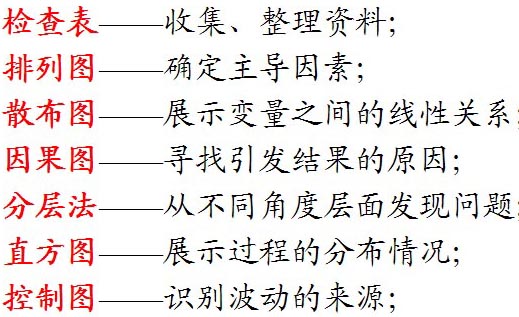 检查表——收集、整理资料；
排列图——确定主导因素；
散布图——展示变量之间的线性关系；
因果图——寻找引发结果的原因；
分层法——从不同角度层面发现问题；
直方图——展示过程的分布情况；
控制图——识别波动的来源；